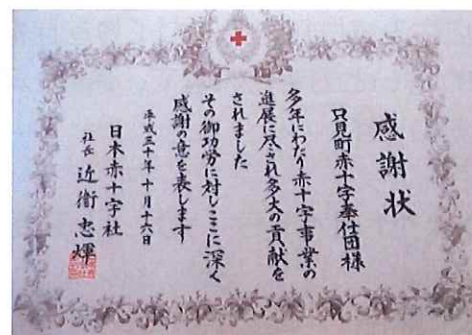 感謝状
只見町赤十字奉仕団様
多年にわたり赤十字事業の
進展に尽され多大の貢献を
されました
その御功労に対しここに深く
感謝の意を表します
平成三十年十月十六日
日本赤十字社
社長 近衛忠煇